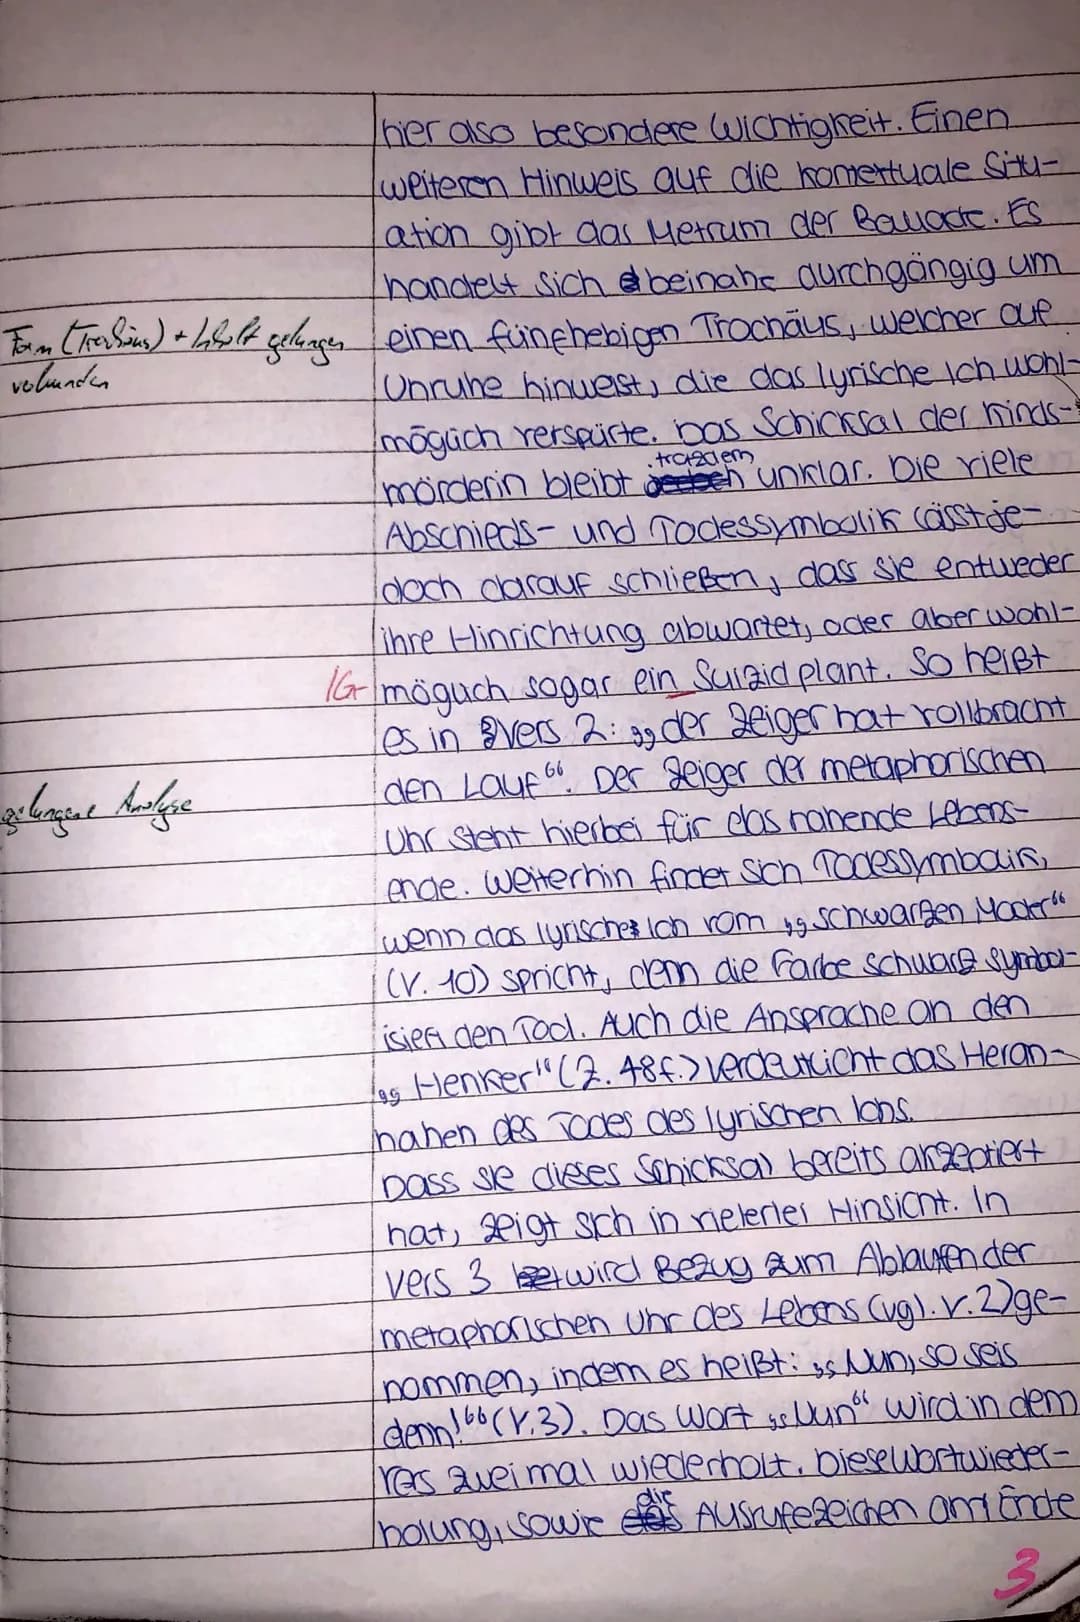 hier also besondere Wichtigkeit. Einen
weiteren Hinweis auf die kontextuale Situ-
ation gibt das Metrum der Ballade. Es
handelt sich beinahe durchgängig um
Form (Trochäus) + Inhalt gelungen
verbunden
einen fünfhebigen Trochäus, welcher auf
Unruhe hinweist, die das lyrische Ich wohl-
möglich verspürte. Das Schicksal der Kinds-
mörderin bleibt trotzdem unklar. Die viele
Abschieds- und Todessymbolik lässt je-
doch darauf schließen, dass sie entweder
ihre Hinrichtung abwartet, oder aber wohl-
IG
möglich sogar ein Suizid plant. So heißt
es in Vers 2: „der Zeiger hat vollbracht
den Lauf“. Der Zeiger der metaphorischen
gelungene Analyse
Uhr steht hierbei für das nahende Lebens-
ende. Weiterhin findet sich Todessymbolik,
wenn das lyrische Ich vom „schwarzen Moder“
(V. 10) spricht, denn die Farbe schwarz symbol-
isiert den Tod. Auch die Ansprache an den
„Henker“ (Z. 48f.) verdeutlicht das Heran-
nahen des Todes des lyrischen Ichs.
Dass sie dieses Schicksal bereits akzeptiert
hat, zeigt sich in vielerlei Hinsicht. In
Vers 3 wird Bezug zum Ablaufen der
metaphorischen Uhr des Lebens (vgl. V. 2) ge-
nommen, indem es heißt: „Nun, so seis
denn!“ (V. 3). Das Wort „Nun“ wird in dem
Vers zweimal wiederholt. Diese Wortwieder-
holung, sowie die Ausrufezeichen am Ende
3